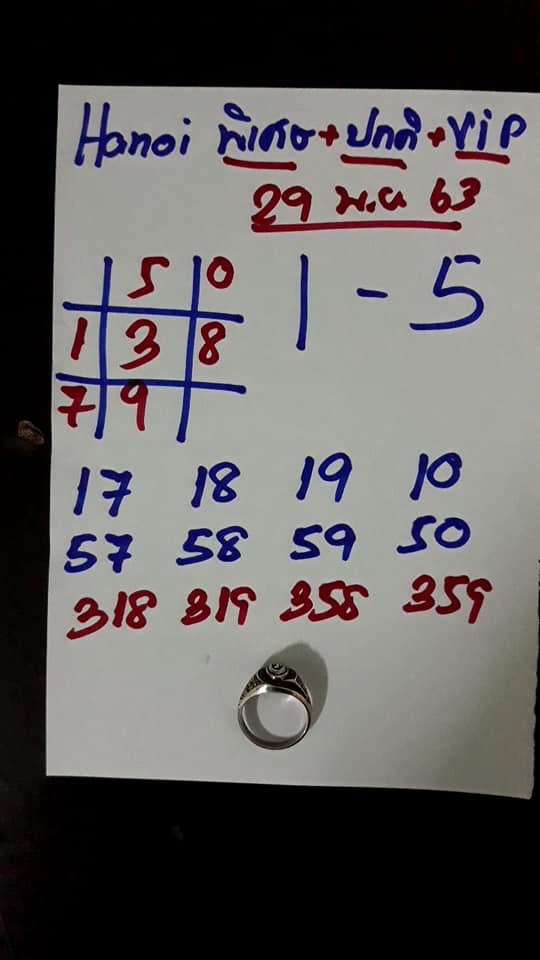 Hanoi พิเศษ+ปกติ+ViP
29 พ.ย 63
5 0
1 3 8
7 9
1 - 5
17 18 19 10
57 58 59 50
318 319 358 359